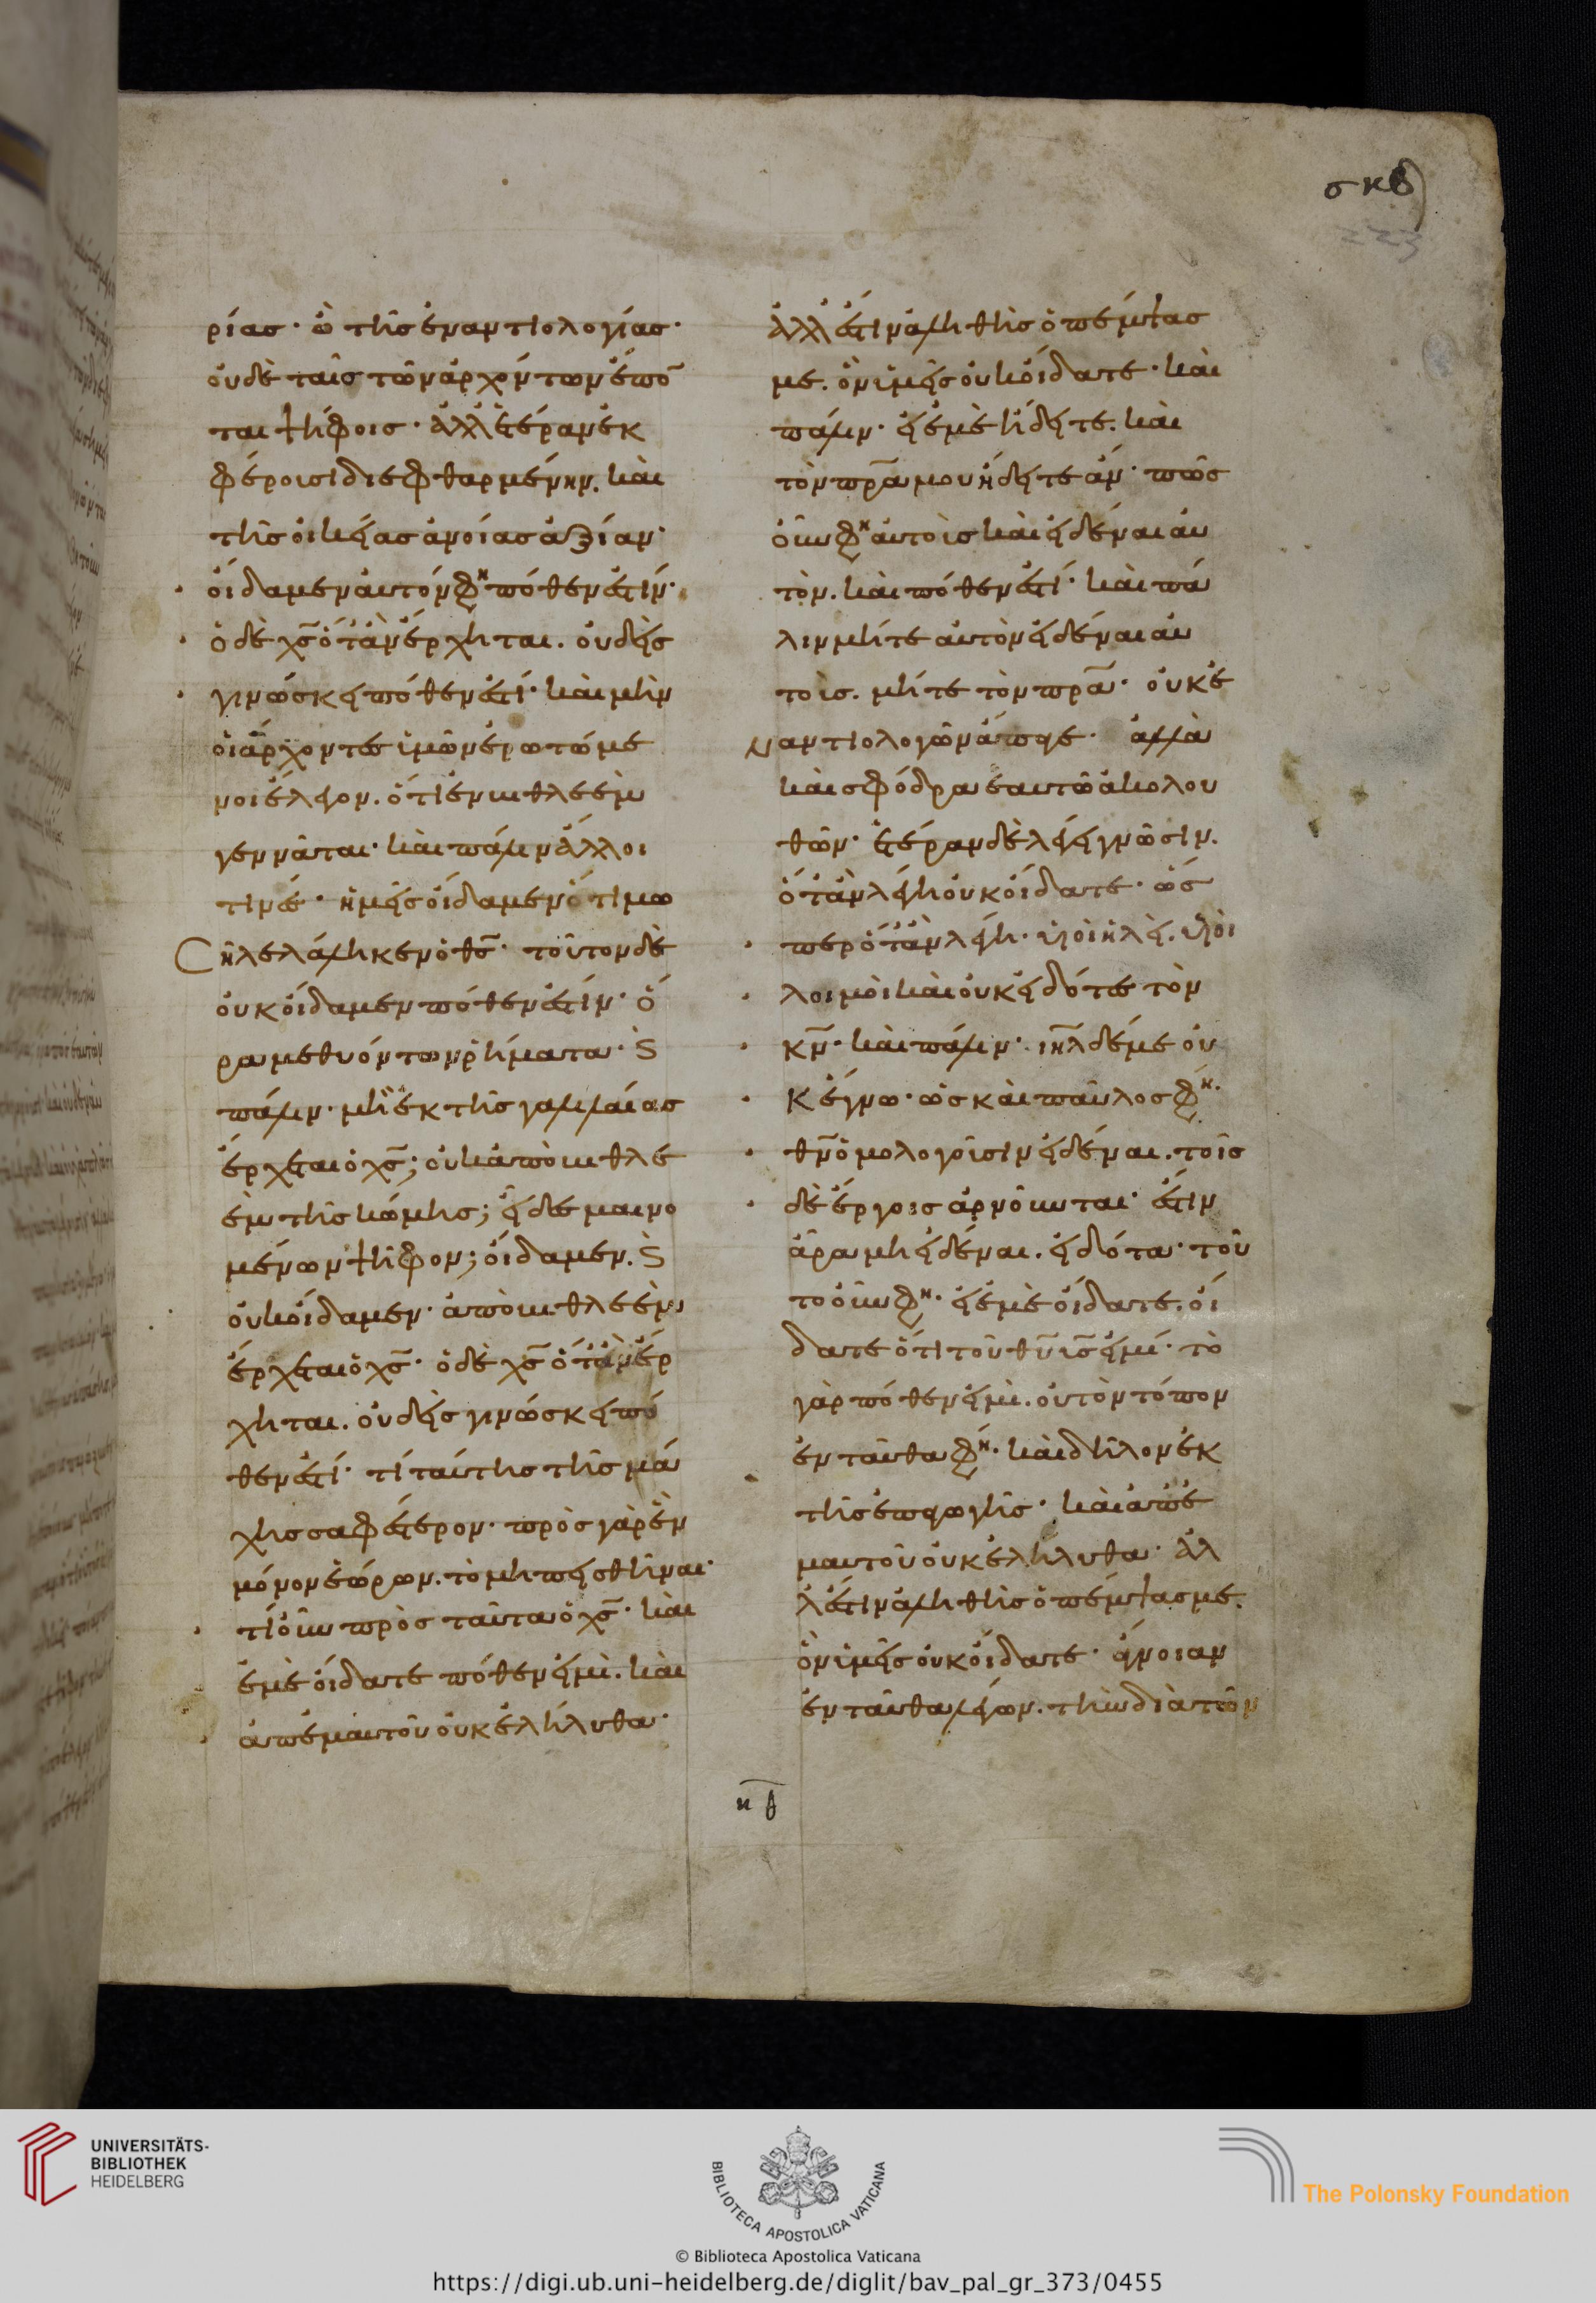 σκβ
223
ρίας· ὢ τῆς ἐναντιολογίας·
οὐδὲ ταῖς τῶν ἀρχόντων ἕπο̅
ται ψήφοις· ἀλλ' ἑτέραν ἐκ
φέρουσι διεφθαρμένην. καὶ
τῆς οἰκείας ἀνοίας ἀξίαν·
οἴδαμεν αὐτόν φη πόθεν ἐστίν·
ὁ δὲ χς̅ ὅταν ἔρχηται. οὐδεὶς
γινώσκει πόθεν ἐστί· καὶ μὴν
οἱ ἄρχοντες ὑμῶν ἐρωτώμε
νοι ἔλεγον. ὅτι ἐν βηθλεὲμ
γεννᾶται· καὶ πάλιν ἄλλοι
τινές· ἡμεῖς οἴδαμεν ὅτι μω
σῇ λελάληκεν ὁ θς̅· τοῦτον δὲ
οὐκ οἴδαμεν πόθεν ἐστίν· ὅ
ρα μεθυόντων ῥήματα· ϛ
πάλιν· μὴ ἐκ τῆς γαλιλαίας
ἔρχεται ὁ χς̅; οὐκ ἀπὸ βηθλε
ὲμ τῆς κώμης; εἶδες μαινο
μένων ψῆφον; οἴδαμεν. ϛ
οὐκ οἴδαμεν· ἀπὸ βηθλεὲμ
ἔρχεται ὁ χς̅· ὁ δὲ χς̅ ὅταν ἔρ
χηται. οὐδεὶς γινώσκει πό
θεν ἐστί· τί ταύτης τῆς μά
χης σαφέστερον· πρὸς γὰρ ἓν
μόνον ἑώρων. τὸ μὴ πεισθῆναι·
τί οὖν πρὸς ταῦτα ὁ χς̅· καὶ
ἐμὲ οἴδατε πόθεν εἰμὶ. καὶ
ἀπ' ἐμαυτοῦ οὐκ ἐλήλυθα·
ἀλλ' ἔστιν ἀληθὴς ὁ πέμψας
με. ὃν ὑμεῖς οὐκ οἴδατε· καὶ
πάλιν· εἰ ἐμὲ ᾔδειτε. καὶ
τὸν πρ̅α μου ᾔδειτε ἄν· πῶς
οὖν φη αὐτοὺς καὶ εἰδέναι αὐ
τὸν. καὶ πόθεν ἐστί· καὶ πά
λιν μήτε αὐτὸν εἰδέναι αὐ
τοὺς. μήτε τὸν πρ̅α· οὐκ ἐ
ναντιολογῶν ἄπαγε· ἀλλὰ
καὶ σφόδρα ἑαυτῷ ἀκολου
θῶν· ἑτέραν δὲ λέγει γνῶσιν.
ὅταν λέγῃ οὐκ οἴδατε· ὥσ
περ ὅταν λέγῃ· υἱοὶ ἠλεὶ. υἱοὶ
λοιμοὶ καὶ οὐκ εἰδότες τὸν
κν̅· καὶ πάλιν· ιηλ̅ δέ με οὐ
κ ἔγνω· ὡς καὶ παῦλος φη·
θν̅ ὁμολογοῦσιν εἰδέναι. τοῖς
δὲ ἔργοις ἀρνοῦνται· ἔστιν
ἄρα μὴ εἰδέναι. εἰδότα· τοῦ
το οὖν φη· εἰ ἐμὲ οἴδατε. οἴ
δατε ὅτι τοῦ θυ̅ υς̅ εἰμί· τὸ
γὰρ πόθεν εἰμὶ. οὐ τὸν τόπον
ἐνταῦθα φη· καὶ δῆλον ἐκ
τῆς ἐπαγωγῆς· καὶ ἀπ' ἐ
μαυτοῦ οὐκ ἐλήλυθα· ἀλ
λ' ἔστιν ἀληθὴς ὁ πέμψας με.
ὃν ὑμεῖς οὐκ οἴδατε· ἄγνοιαν
ἐνταῦθα λέγων. τὴν διὰ τῶν
κβ
UNIVERSITÄTS-
BIBLIOTHEK
HEIDELBERG
BIBLIOTECA APOSTOLICA VATICANA
The Polonsky Foundation
© Biblioteca Apostolica Vaticana
https://digi.ub.uni-heidelberg.de/diglit/bav_pal_gr_373/0455